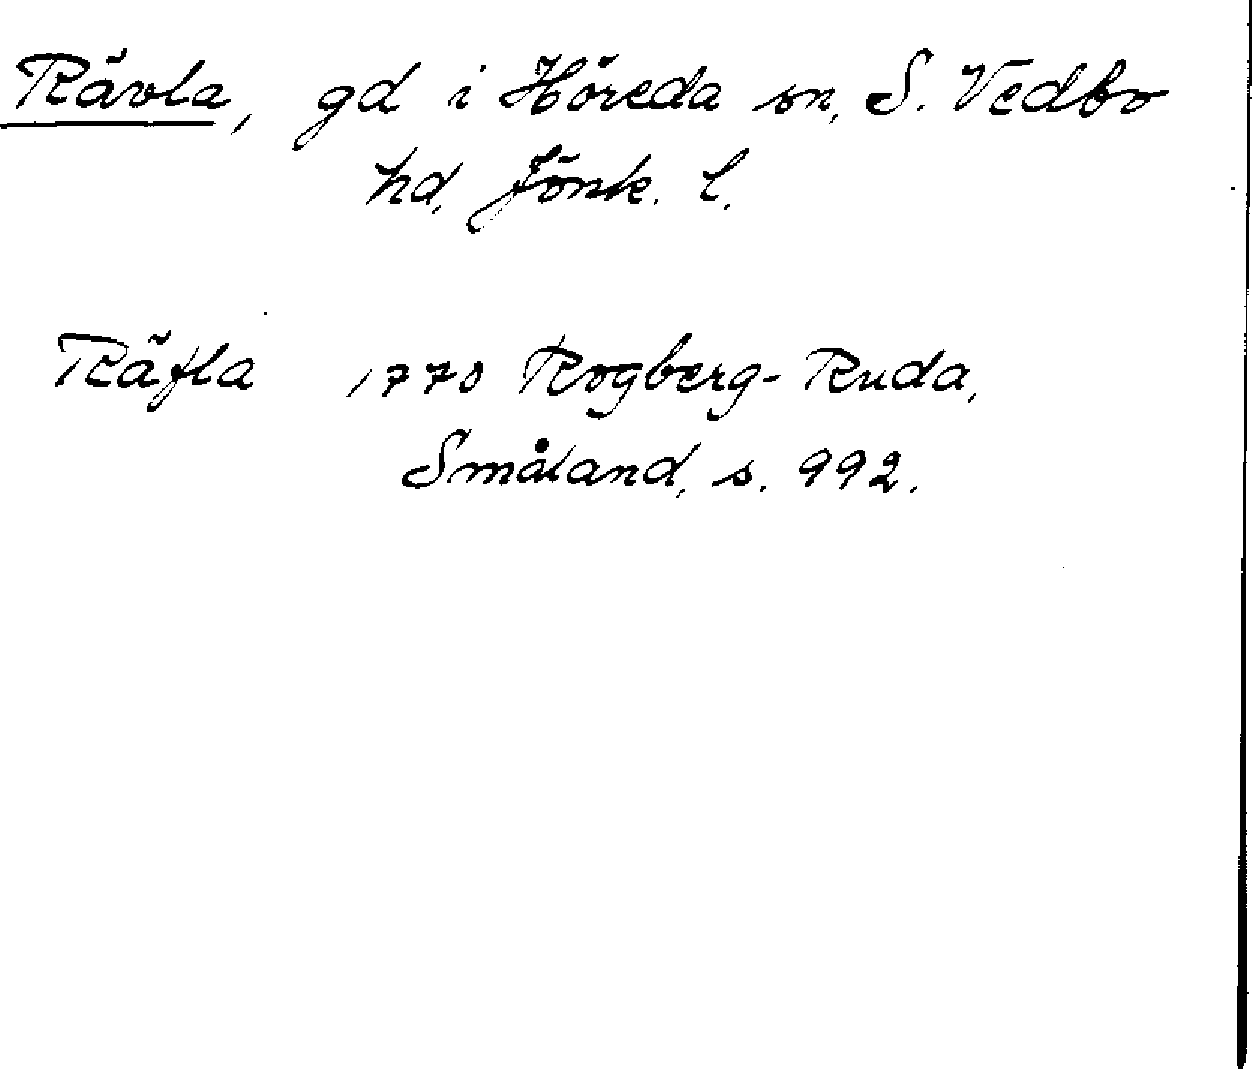 Rävla, gd i Höreda sn, S. Vedbo
hd, Jönk. l.
Räfla 1770 Rogberg-Ruda,
Småland, s. 992.